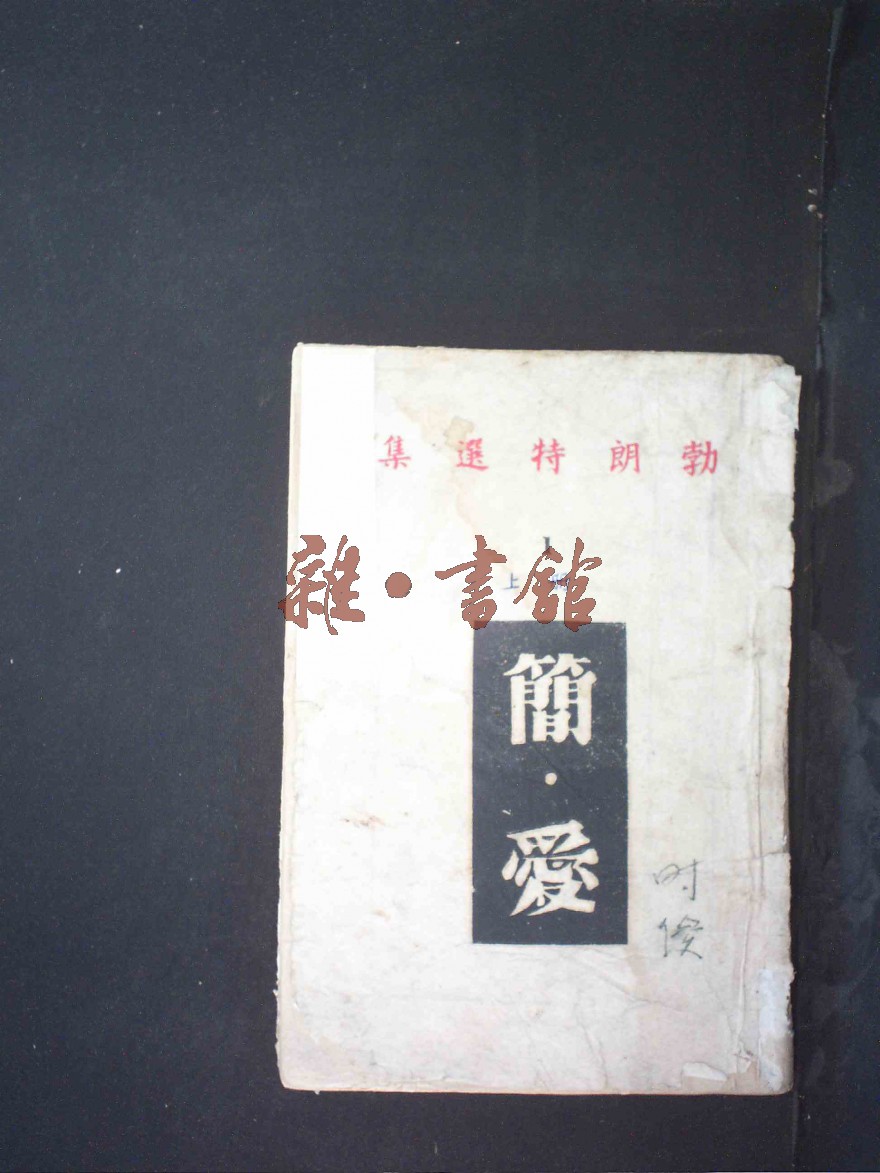 勃朗特選集
雜·書館
上
簡·愛
时俊